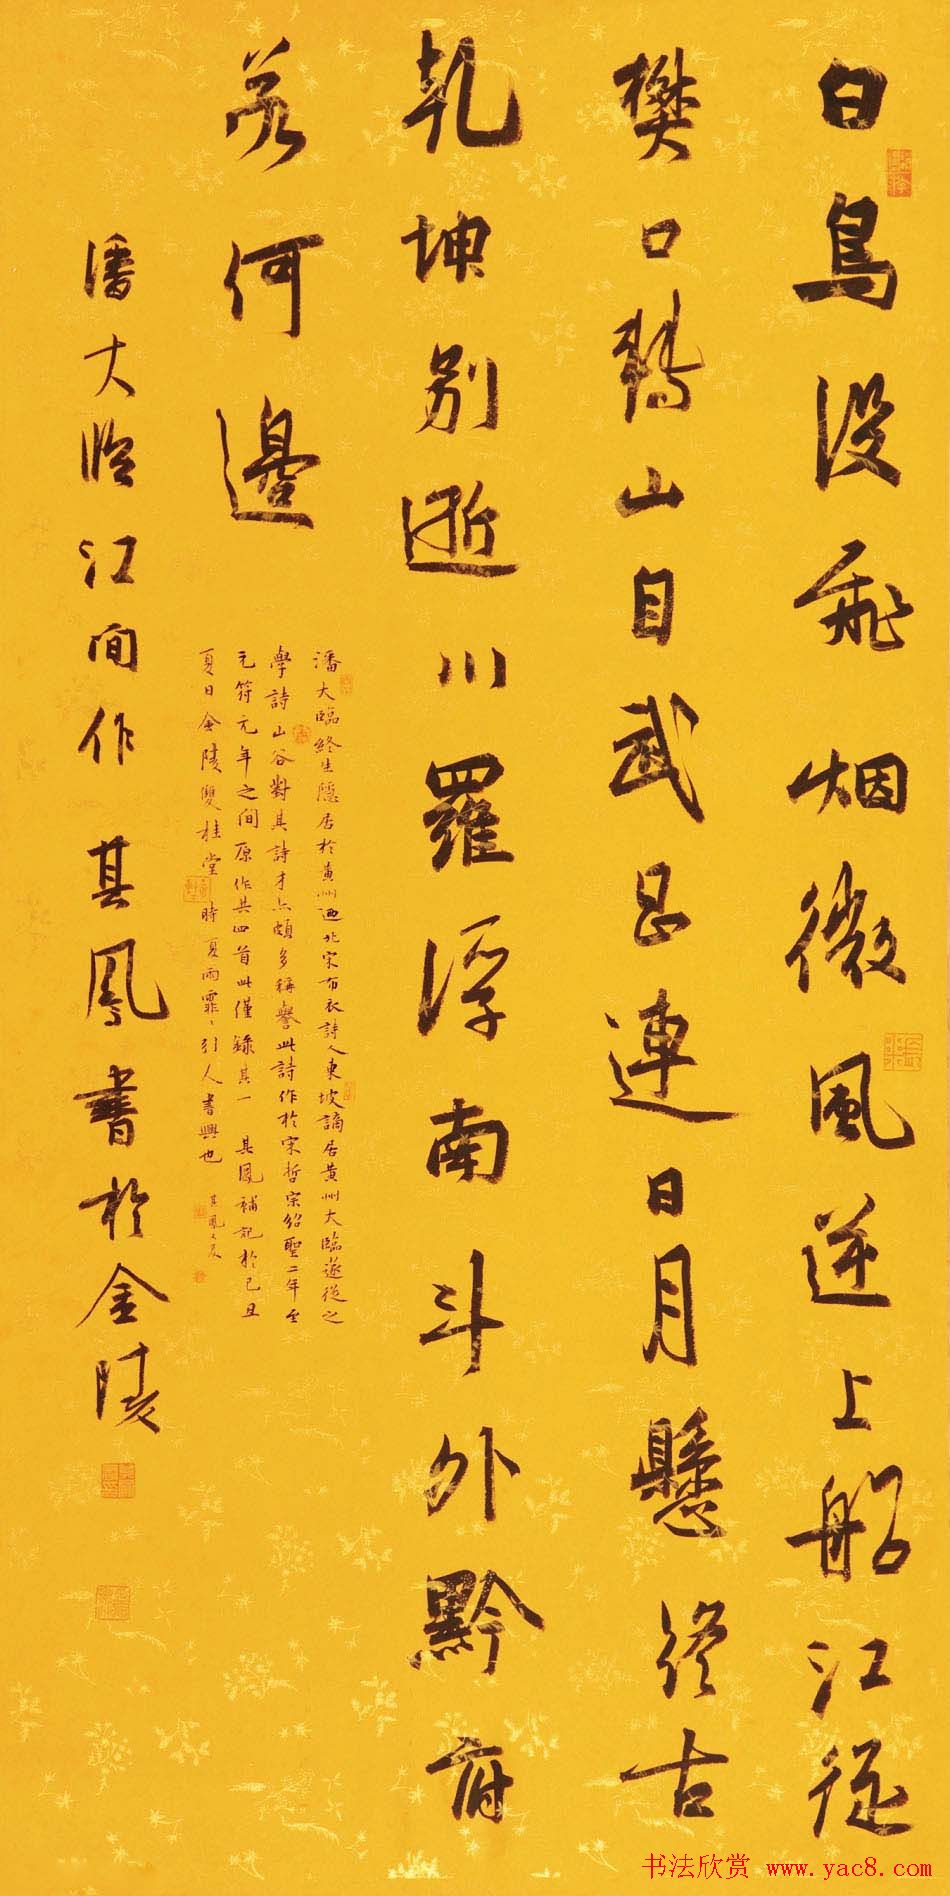 白鳥没飛烟微風逆上船江從
樊口轉山自武昌連日月懸終古
乾坤別逝川羅浮南斗外黔府
若何邊
潘大臨終生隱居於黄州迺北宋布衣詩人東坡謫居黄州大臨遂從之
學詩山谷對其詩才亦頗多稱譽此詩作於宋哲宗紹聖二年至
元符元年之間原作共四首此僅録其一 其鳳補記於己丑
夏日金陵雙桂堂時夏雨霏〻引人書興也 其鳳又及
潘大臨江間作 其鳳書於金陵
书法欣赏 www.yac8.com